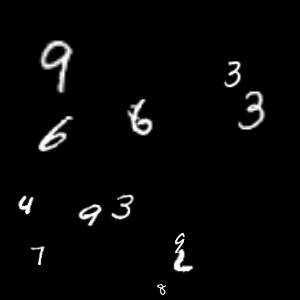 9 3
3
6 6
4 9 3
7 9
2
8